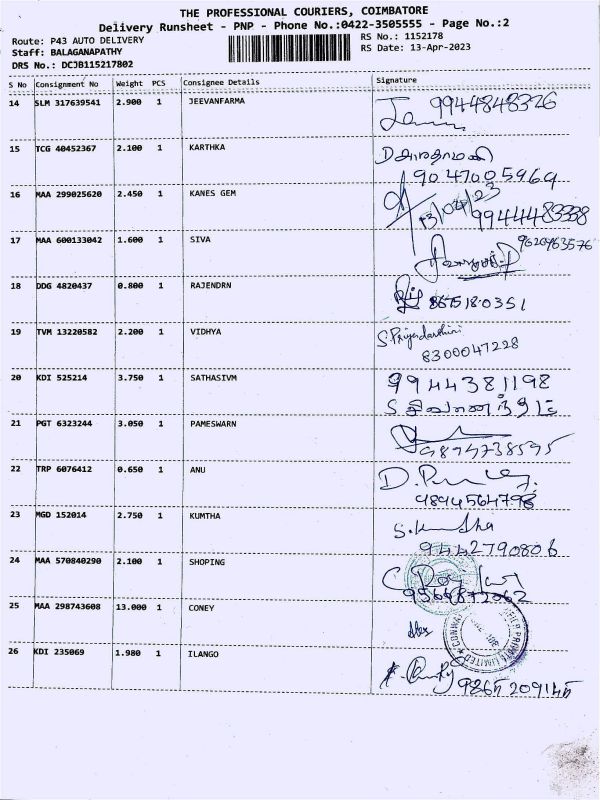 THE PROFESSIONAL COURIERS, COIMBATORE
Delivery Runsheet - PNP - Phone No.:0422-3505555 - Page No.:2
Route: P43 AUTO DELIVERY
Staff: BALAGANAPATHY
DRS No.: DCJB115217802
RS No.: 1152178
RS Date: 13-Apr-2023
S No Consignment No Weight PCS Consignee Details Signature
14 SLM 317639541 2.900 1 JEEVANFARMA
9944848326
15 TCG 40452367 2.100 1 KARTHKA
9047005969
16 MAA 299025620 2.450 1 KANES GEM
13/04/23
9944483338
17 MAA 600133042 1.600 1 SIVA
9620963576
18 DDG 4820437 0.800 1 RAJENDRN
19 TVM 13220582 2.200 1 VIDHYA
S. Priyadarshini
8300047228
20 KDI 525214 3.750 1 SATHASIVM
9944381198
21 PGT 6323244 3.050 1 PAMESWARN
9894738595
22 TRP 6076412 0.650 1 ANU
9894564798
23 MGD 152014 2.750 1 KUMTHA
S. Kumutha
9442790806
24 MAA 570840290 2.100 1 SHOPING
25 MAA 298743608 13.000 1 CONEY
26 KDI 235069 1.980 1 ILANGO
9865209145